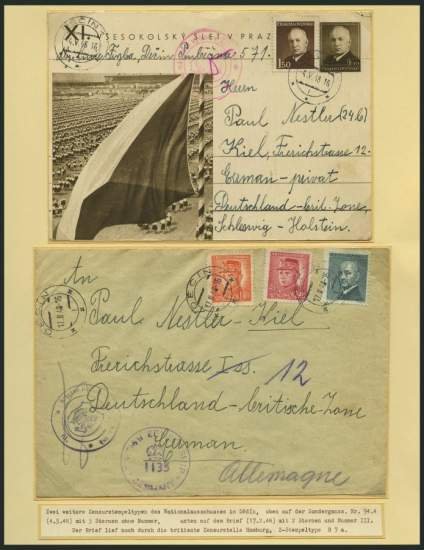 XI. VŠESOKOLSKÝ SLET V PRAZE
DĚČÍN
4.V.48 16
Děčín
571
ČESKOSLOVENSKO
1·50
Herrn
Paul Nestler (24b)
Kiel, Frerichstrasse 12.
German-privat
Deutschland-brit. Zone,
Schleswig-Holstein.
DĚČÍN
An
Paul Nestler-Kiel
Frerichstrasse Iss. 12
Deutschland-britische-Zone
German
1133
Allemagne
Zwei weitere Zensurstempeltypen des Nationalausschusses in Děčín, oben auf der Sonderganzs. Nr. 94.4
(4.5.48) mit 2 Sternen ohne Nummer, unten auf dem Brief (17.2.48) mit 2 Sternen und Nummer III.
Der Brief lief noch durch die britische Zensurstelle Hamburg, Z-Stempeltype B 9 a.